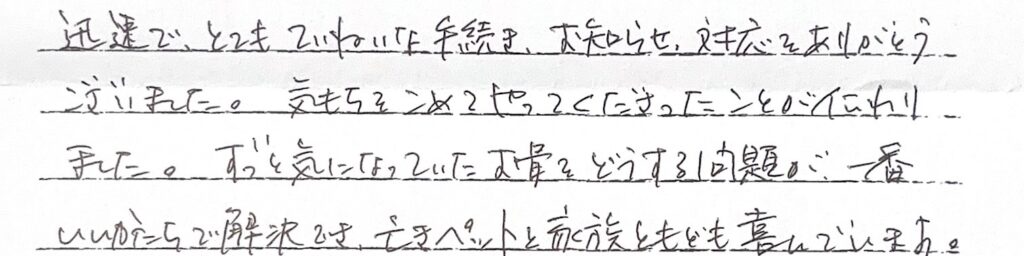 迅速で、とても ていねいな手続き、お知らせ、対応をありがとう
ございました。 気もちをこめてやってくださったことが伝わり
ました。 ずっと気になっていたお骨をどうする問題が、一番
いいかたちで解決でき、亡きペットと家族ともども喜んでいます。